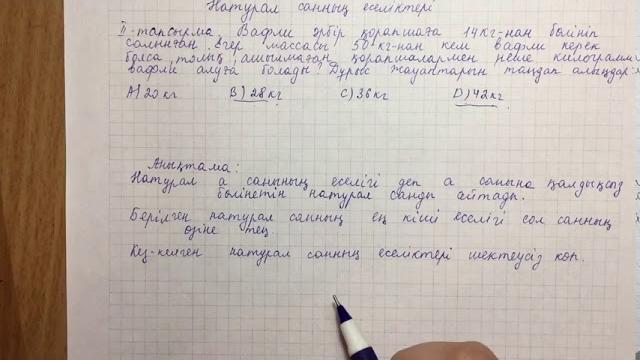 Натурал санның еселіктері
II-тапсырма. Вафли әрбір қорапшаға 14кг-нан бөлініп
салынған. Егер массасы 50 кг-нан кем вафли керек
болса, толық ашылмаған қорапшалармен неше килограмм
вафли алуға болады? Дұрыс жауаптарын таңдап алыңдар:
А) 20 кг В) 28 кг С) 36 кг D) 42 кг
Анықтама:
Натурал а санының еселігі деп а санына қалдықсыз
бөлінетін натурал санды айтады.
Берілген натурал санның ең кіші еселігі сол санның
өзіне тең.
Кез-келген натурал санның еселіктері шектеусіз көп.